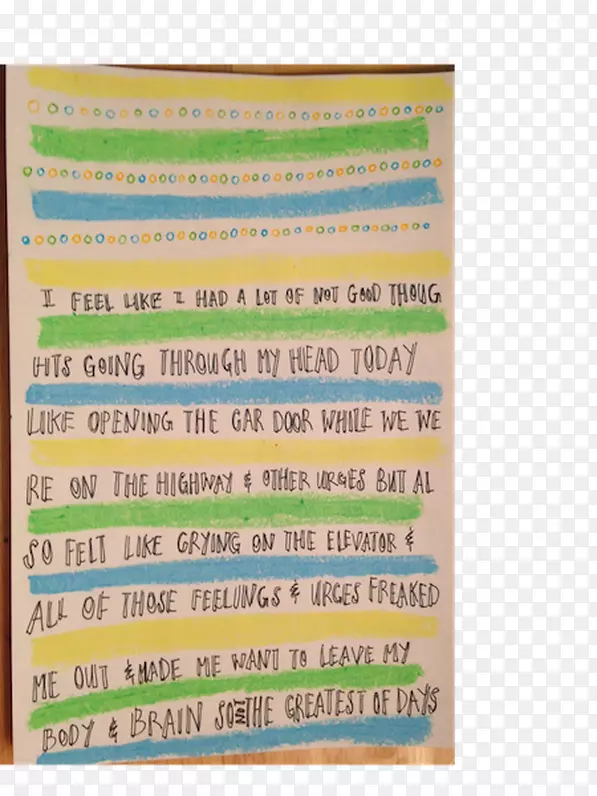 I FEEL LIKE I HAD A LOT OF NOT GOOD THOUG
HTS GOING THROUGH MY HEAD TODAY
LIKE OPENING THE CAR DOOR WHILE WE WE
RE ON THE HIGHWAY & OTHER URGES BUT AL
SO FELT LIKE CRYING ON THE ELEVATOR &
ALL OF THOSE FEELINGS & URGES FREAKED
ME OUT & MADE ME WANT TO LEAVE MY
BODY & BRAIN SO NOT THE GREATEST OF DAYS